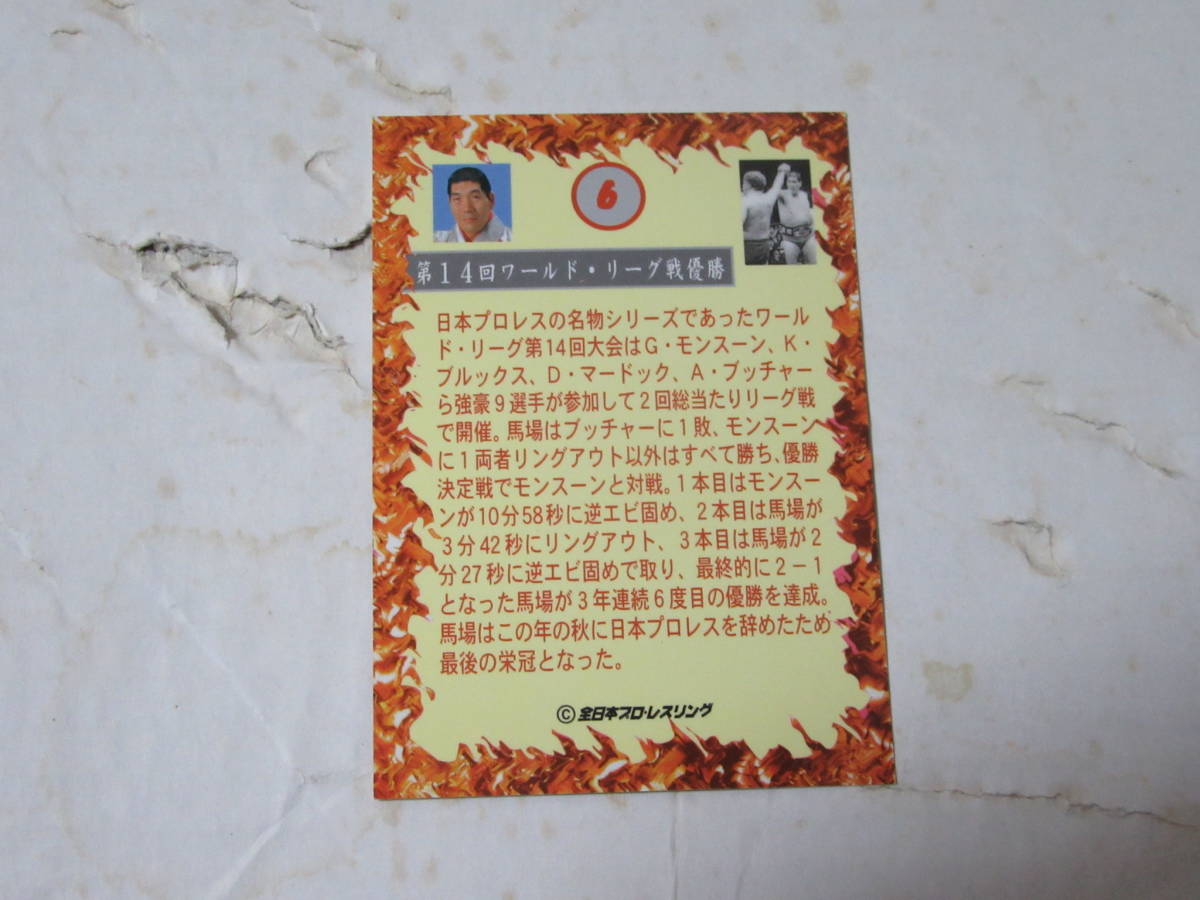 6
第14回ワールド・リーグ戦優勝
日本プロレスの名物シリーズであったワール
ド・リーグ第14回大会はG・モンスーン、K・
ブルックス、D・マードック、A・ブッチャー
ら強豪9選手が参加して2回総当たりリーグ戦
で開催。馬場はブッチャーに1敗、モンスーン
に1両者リングアウト以外はすべて勝ち、優勝
決定戦でモンスーンと対戦。1本目はモンスー
ンが10分58秒に逆エビ固め、2本目は馬場が
3分42秒にリングアウト、3本目は馬場が2
分27秒に逆エビ固めで取り、最終的に2−1
となった馬場が3年連続6度目の優勝を達成。
馬場はこの年の秋に日本プロレスを辞めたため
最後の栄冠となった。
©全日本プロ・レスリング